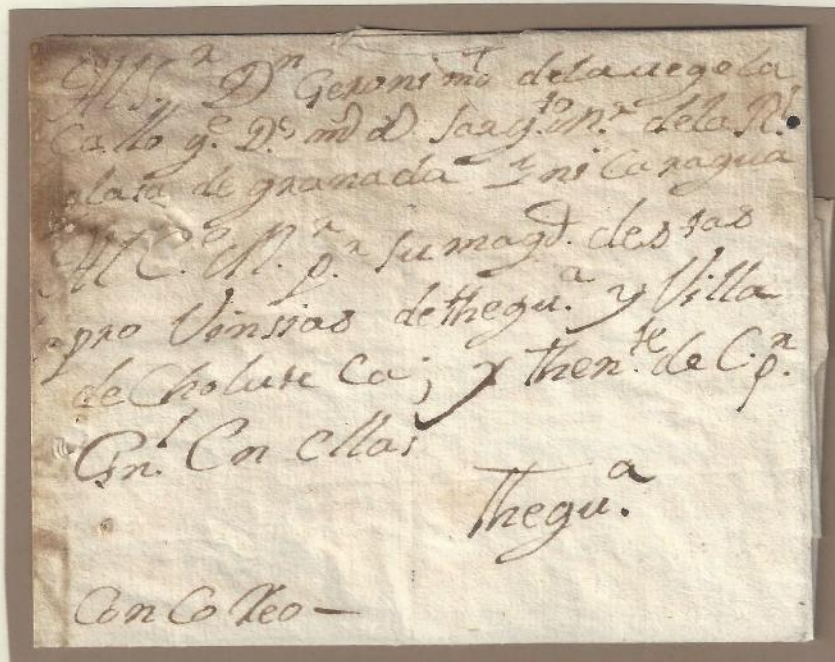 Al S.r D.n Geronimo delauega la
Callo g.e D.s m.s a.s Sarg.to m.r dela R.l
plasa de granada Y ni Caragua
Al C.e M. p.r Su mag.d destas
pro Vinsias dethegu.a y Villa
de Cholute Ca; y then.te de C.p.n
Gn.l En ellas
thegu.a
Con Co Reo –